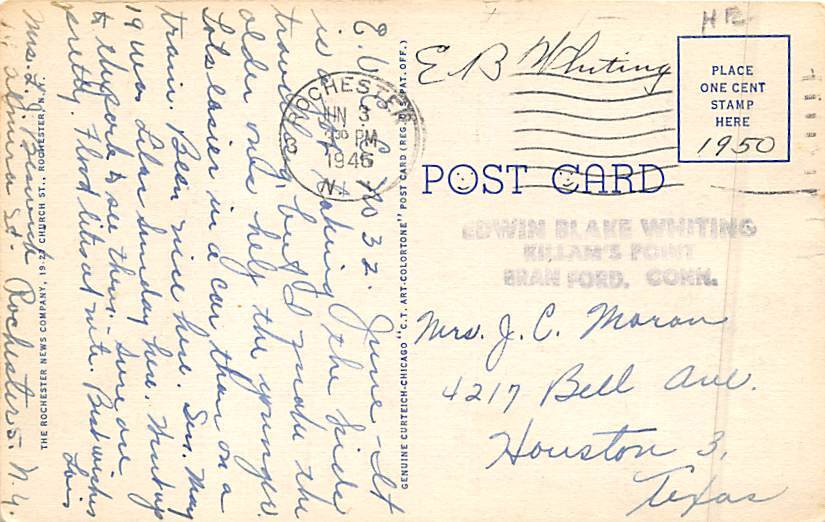 E.V.C. 32. June - It
is taking the kids
traveling, but I guess the
older ones help the younger.
Lots easier in a car than on a
train. Been nice here. Sun. May
19 was Lilac Sunday here. Went up
to the park to see them. Sure are
pretty. Flood lites at nite. Best wishes
Lois
Mrs. L. J.
St. Rochester 5, N.Y.
THE ROCHESTER NEWS COMPANY, 19-27 CHURCH ST., ROCHESTER, N.Y.
GENUINE CURTEICH-CHICAGO "C.T. ART-COLORTONE" POST CARD (REG. U.S. PAT. OFF.)
ROCHESTER
JUN 3
3:30 PM
1946
N.Y.
3
E B Whiting
HE
PLACE
ONE CENT
STAMP
HERE
1950
POST CARD
EDWIN BLAKE WHITING
KILLAM'S POINT
BRANFORD, CONN.
Mrs. J. C. Moran
4217 Bell Ave.
Houston 3,
Texas